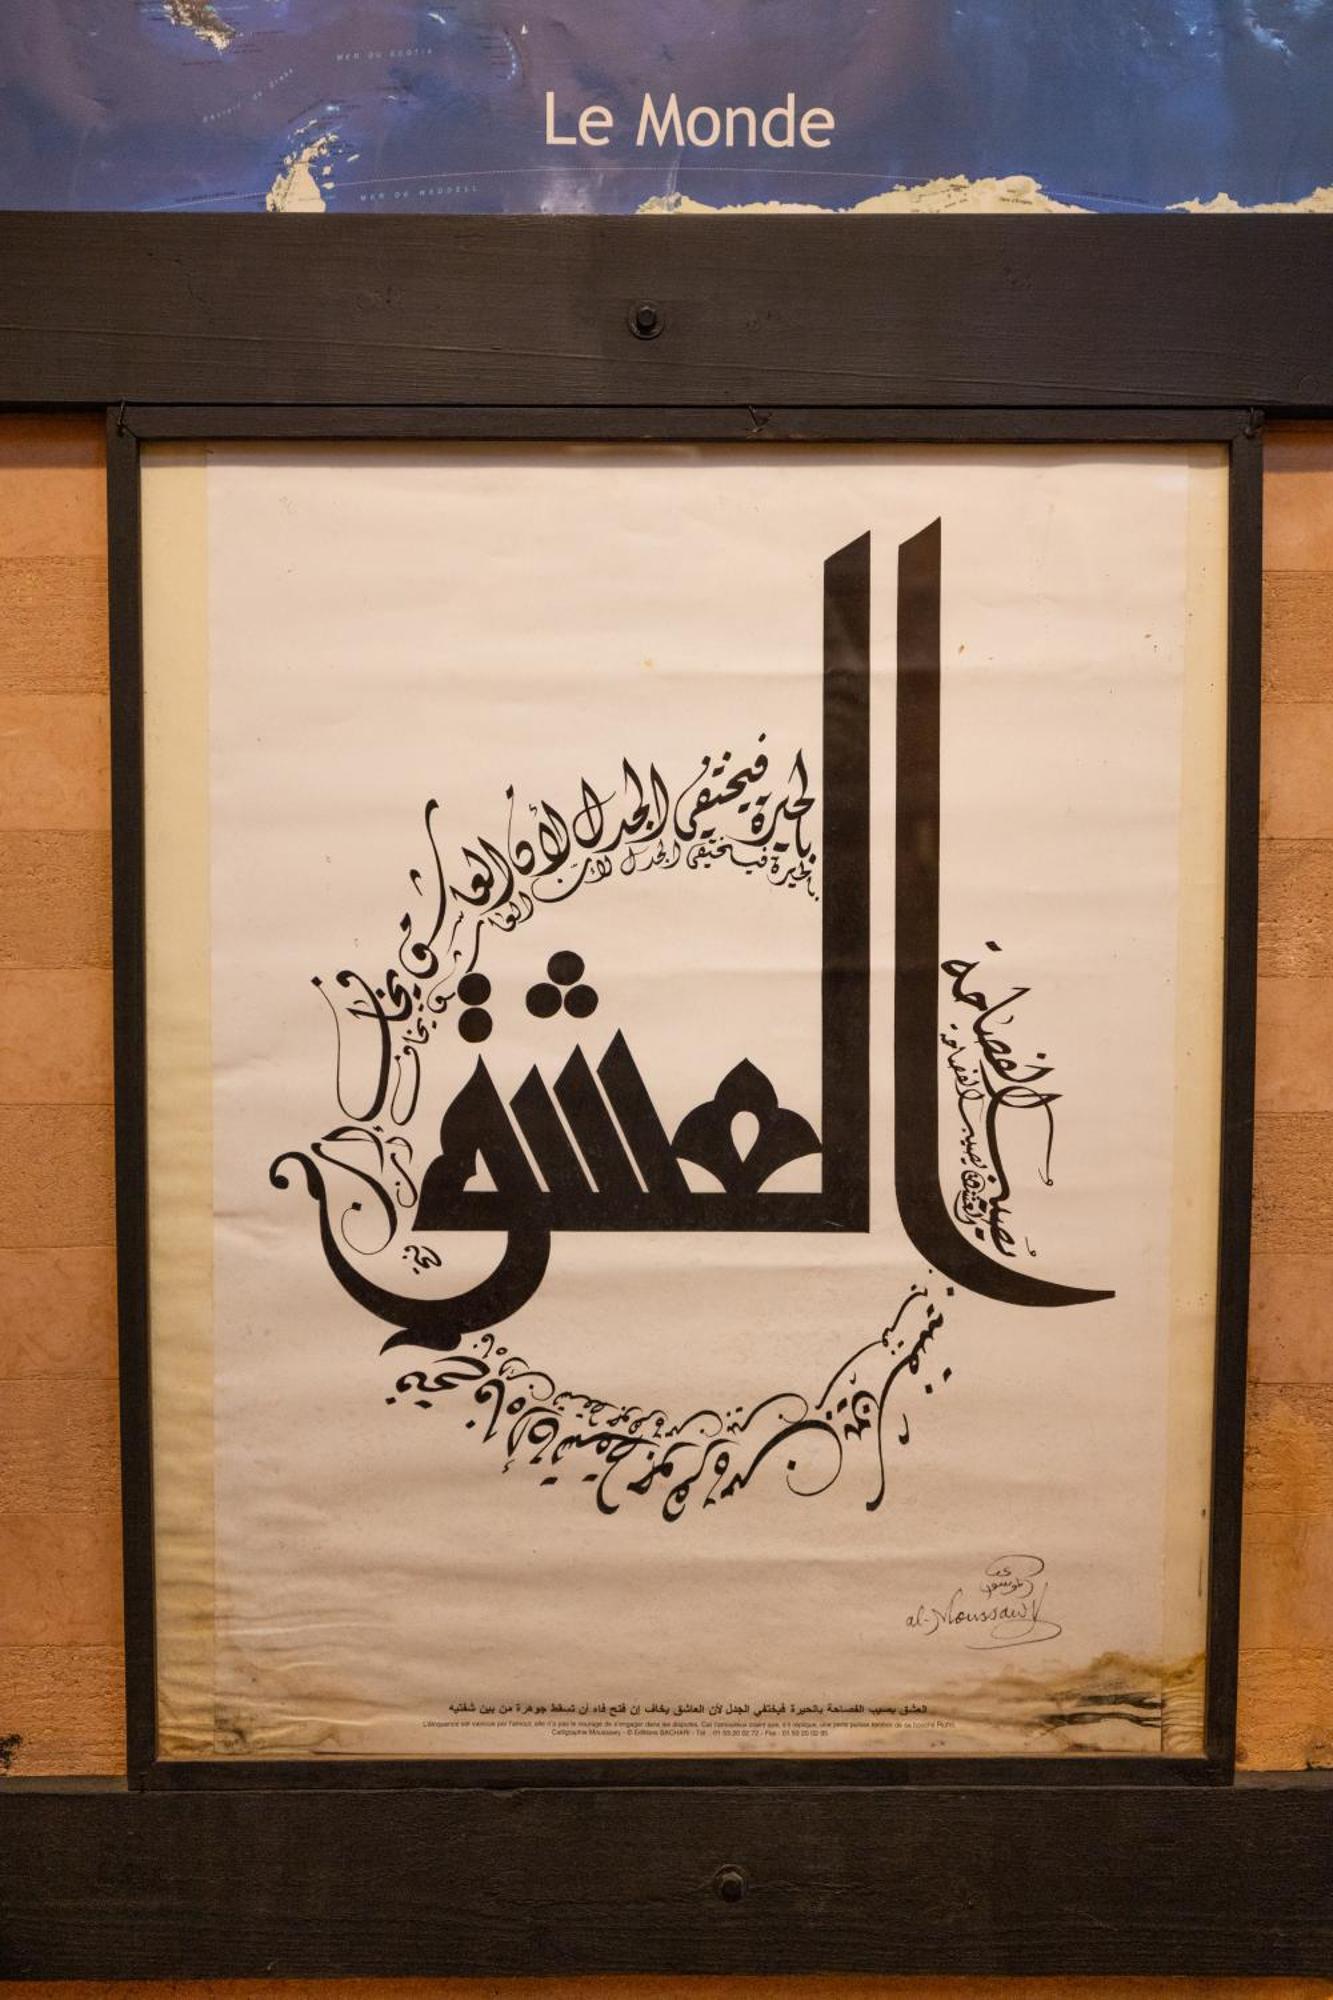 MER DU SCOTIA
Le Monde
MER DE WEDDELL
العشق
يصيب الفصاحة
بالحيرة فيختفي الجدل لأن العاشق يخاف إن
فتح فاه أن تسقط جوهرة من بين شفتيه
الموسوي
al-Moussawy
العشق يصيب الفصاحة بالحيرة فيختفي الجدل لأن العاشق يخاف إن فتح فاه أن تسقط جوهرة من بين شفتيه
L'éloquence est vaincue par l'amour, elle n'a pas le courage de s'engager dans les disputes. Car l'amoureux craint que, s'il réplique, une perle puisse tomber de sa bouche Rumi.
Calligraphie Moussawy - © Editions BACHARI - Tél : 01 53 20 02 72 - Fax : 01 53 20 02 95